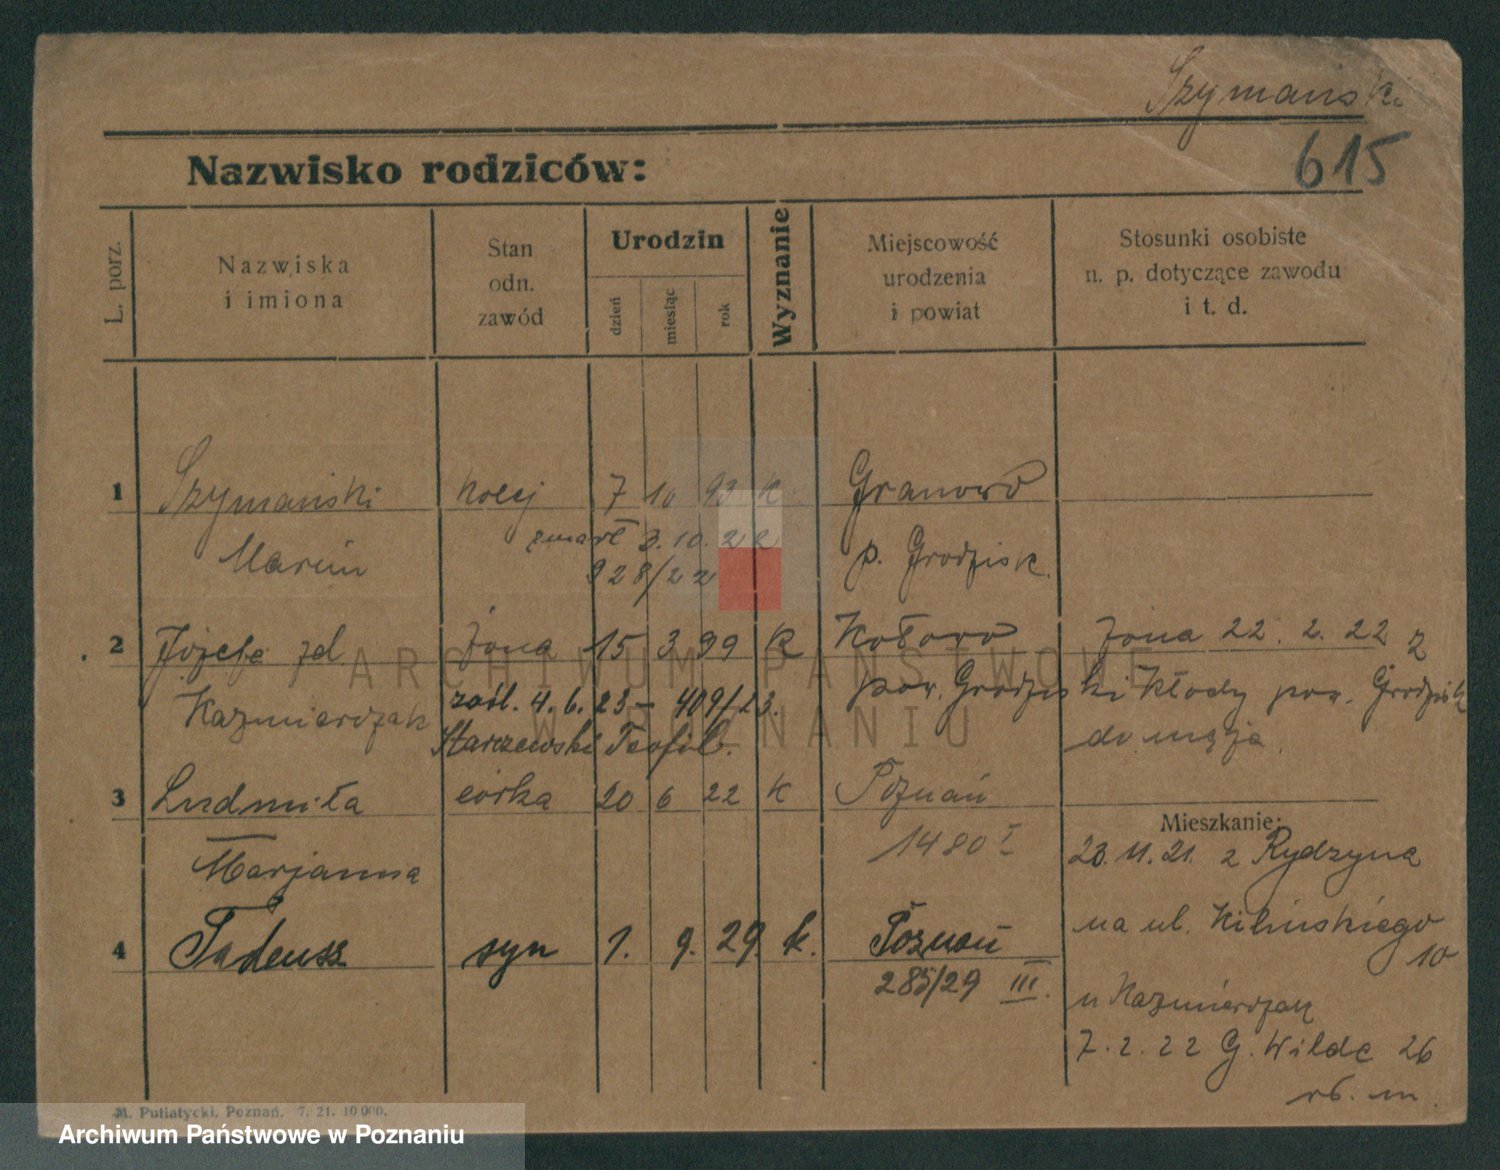 Szymański
615
Nazwisko rodziców:
L. porz.
Nazwiska
i imiona
Stan
odn.
zawód
Urodzin
dzień
miesiąc
rok
Wyznanie
Miejscowość
urodzenia
i powiat
Stosunki osobiste
n. p. dotyczące zawodu
i t. d.
1 Szymański kolej 7 10 93 k Granowo
zmarł 3.10.22
Marcin p. Grodzisk.
928/22
2 Józefa zd. żona 15 3 99 k Kotowo żona 22. 2. 22 z
Kaźmierczak zaśl. 4. 6. 23 – 409/23. pow. Grodziski Kłody pow. Grodzisk
Starzewski Teofil. do męża.
3 Ludmiła córka 20 6 22 k Poznań
Marjanna 1480 I
Mieszkanie:
23.11.21. z Rydzyna
na ul. Kilińskiego
10
4 Tadeusz syn 1. 9. 29. k. Poznań
285/29 III.
u Kaźmierczak
7. 2. 22 G. Wilda 26
rb. m.
M. Putiatycki, Poznań. 7. 21. 10 000.
ARCHIWUM PAŃSTWOWE
W POZNANIU
Archiwum Państwowe w Poznaniu